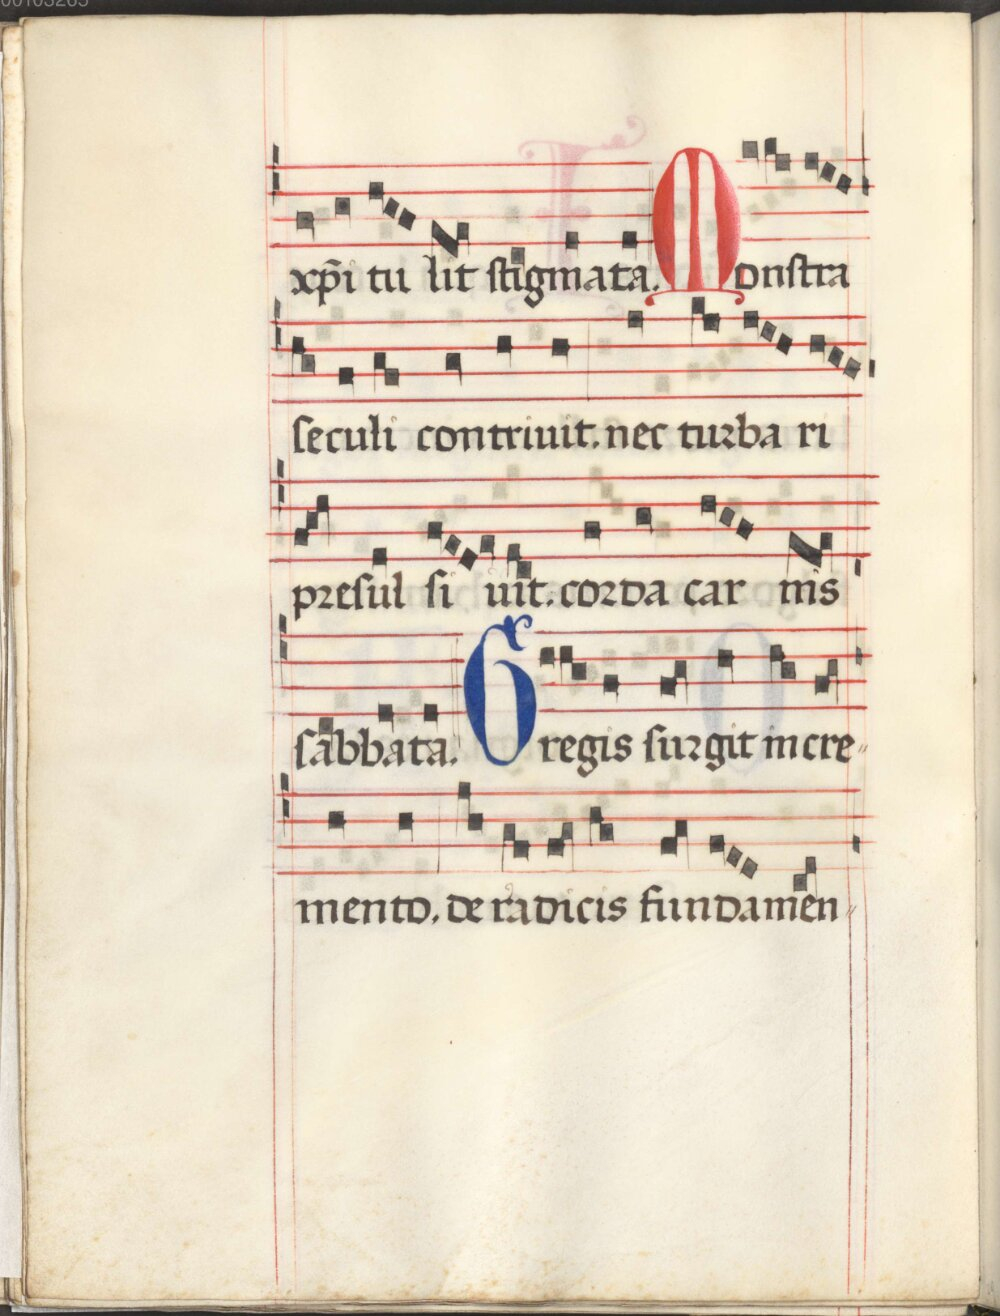 xp̄i tu lit stigmata. Monstra
seculi contriuit. nec turba ri
presul si uit. corda car nis
sabbata. Gregis surgit incre
mento. de radicis fundamen